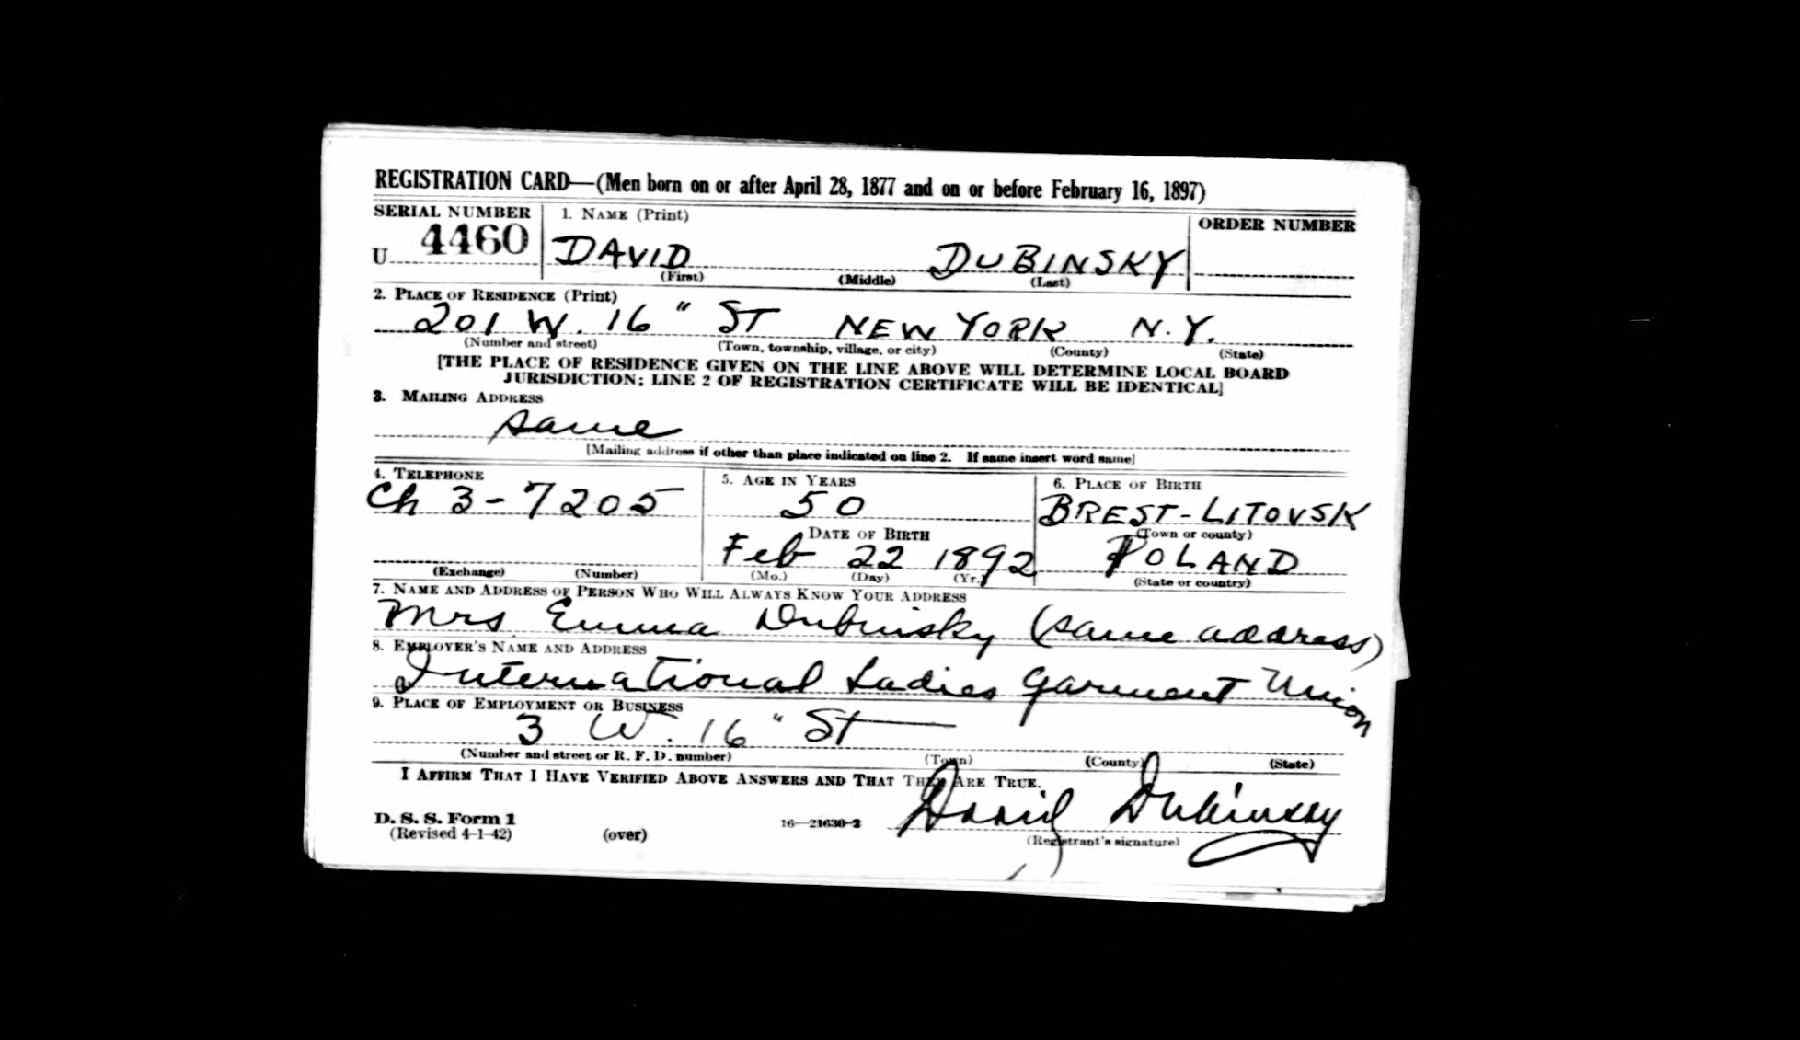 REGISTRATION CARD—(Men born on or after April 28, 1877 and on or before February 16, 1897)
SERIAL NUMBER
U 4460
1. NAME (Print)
DAVID DUBINSKY
(First) (Middle) (Last)
ORDER NUMBER
2. PLACE OF RESIDENCE (Print)
201 W. 16 " ST NEW YORK N.Y.
(Number and street) (Town, township, village, or city) (County) (State)
[THE PLACE OF RESIDENCE GIVEN ON THE LINE ABOVE WILL DETERMINE LOCAL BOARD
JURISDICTION; LINE 2 OF REGISTRATION CERTIFICATE WILL BE IDENTICAL]
3. MAILING ADDRESS
same
[Mailing address if other than place indicated on line 2. If same insert word same]
4. TELEPHONE
Ch 3-7205
(Exchange) (Number)
5. AGE IN YEARS
50
DATE OF BIRTH
Feb 22 1892
(Mo.) (Day) (Yr.)
6. PLACE OF BIRTH
BREST-LITOVSK
(Town or county)
POLAND
(State or country)
7. NAME AND ADDRESS OF PERSON WHO WILL ALWAYS KNOW YOUR ADDRESS
Mrs Emma Dubinsky (same address)
8. EMPLOYER'S NAME AND ADDRESS
International Ladies Garment Union
9. PLACE OF EMPLOYMENT OR BUSINESS
3 W. 16 " St
(Number and street or R. F. D. number) (Town) (County) (State)
I AFFIRM THAT I HAVE VERIFIED ABOVE ANSWERS AND THAT THEY ARE TRUE.
David Dubinsky
(Registrant's signature)
D. S. S. Form 1
(Revised 4-1-42) (over) 16—21630-2